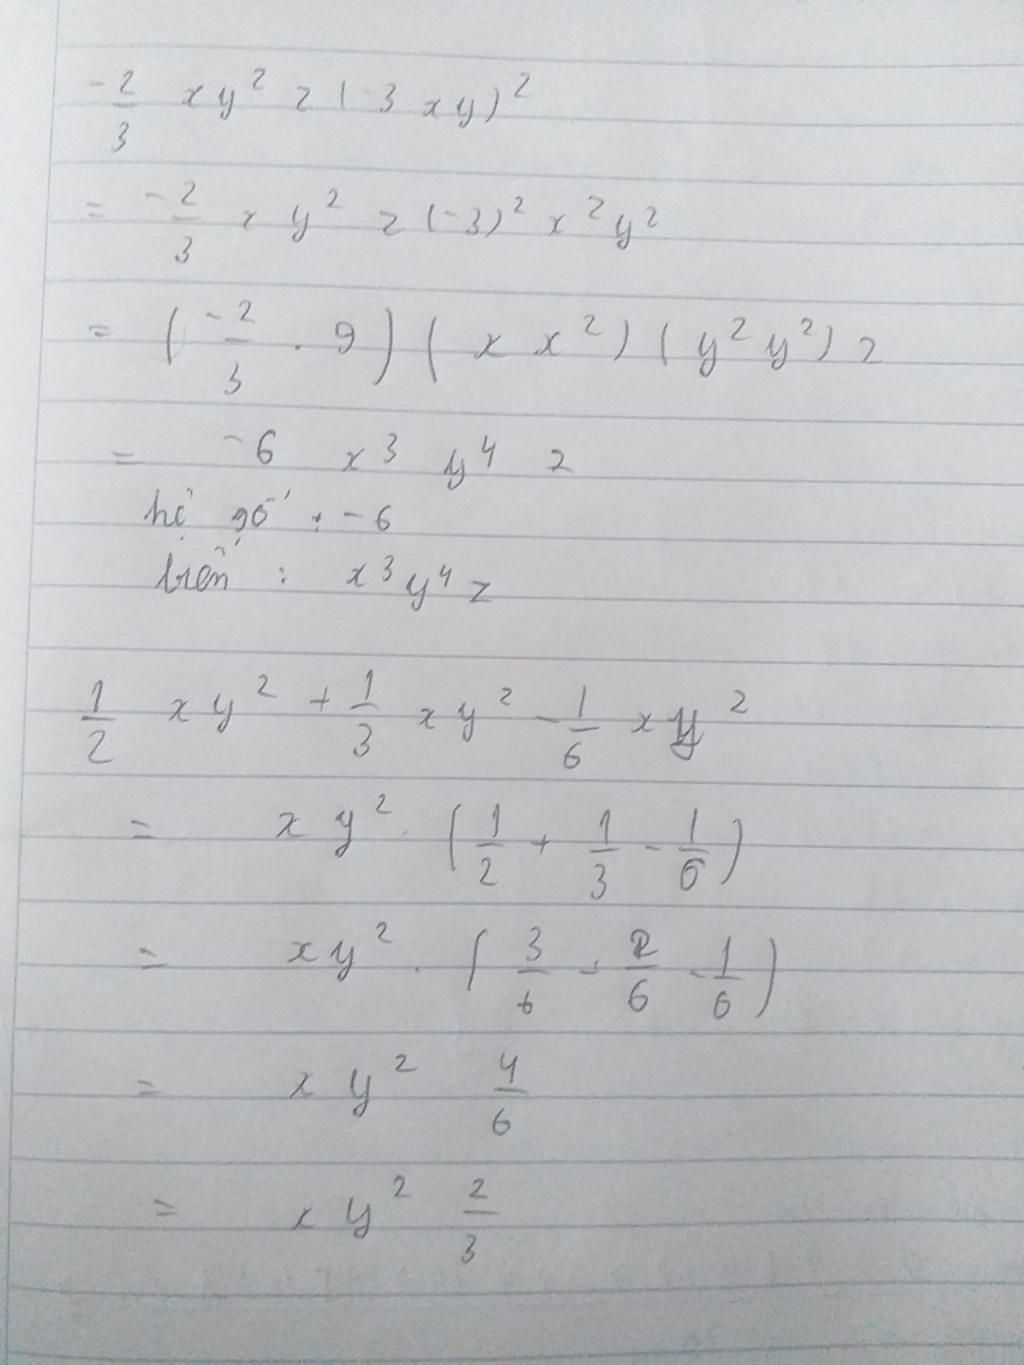 -2/3 xy² z (-3 xy)²
= -2/3 x y² z (-3)² x² y²
= (-2/3 . 9) ( x x² ) ( y² y² ) z
= -6 x³ y⁴ z
hệ số : -6
biến : x³ y⁴ z
1/2 xy² + 1/3 xy² - 1/6 xy²
= xy² . ( 1/2 + 1/3 - 1/6 )
= xy² . ( 3/6 + 2/6 - 1/6 )
= xy² 4/6
= xy² 2/3